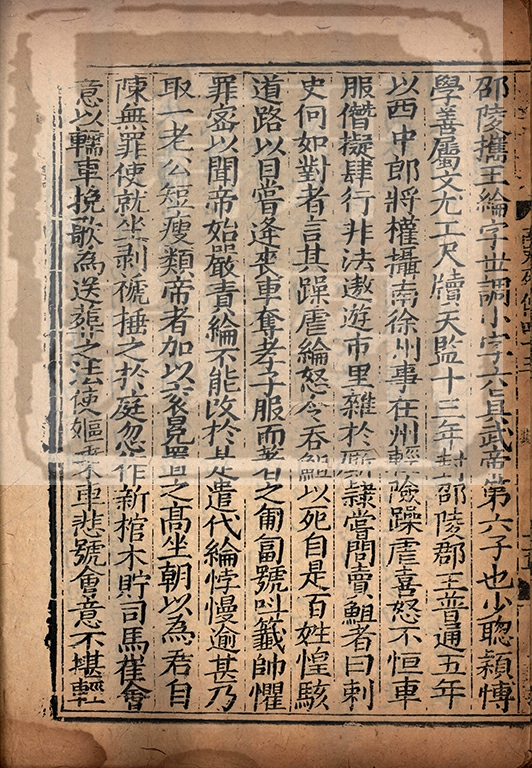 邵陵攜王綸字世調小字六眞武帝第六子也少聰穎愽
學善屬文尤工尺牘天監十三年封邵陵郡王普通五年
以西中郎將權攝南徐州事在州輕險躁虐喜怒不恒車
服僭擬肆行非法遨遊市里雜於廝隸嘗問賣䱇者曰刺
史何如對者言其躁虐綸怒令吞䱇以死自是百姓惶駭
道路以目嘗逢喪車奪孝子服而著之匍匐號叫籤帥懼
罪密以聞帝始嚴責綸不能改於是遣代綸悖慢逾甚乃
取一老公短瘦類帝者加以衮冕置之髙坐朝以為君自
陳無罪使就坐剥褫捶之於庭忽作新棺木貯司馬崔會
意以轜車挽歌為送葬之法使嫗乗車悲號會意不堪輕